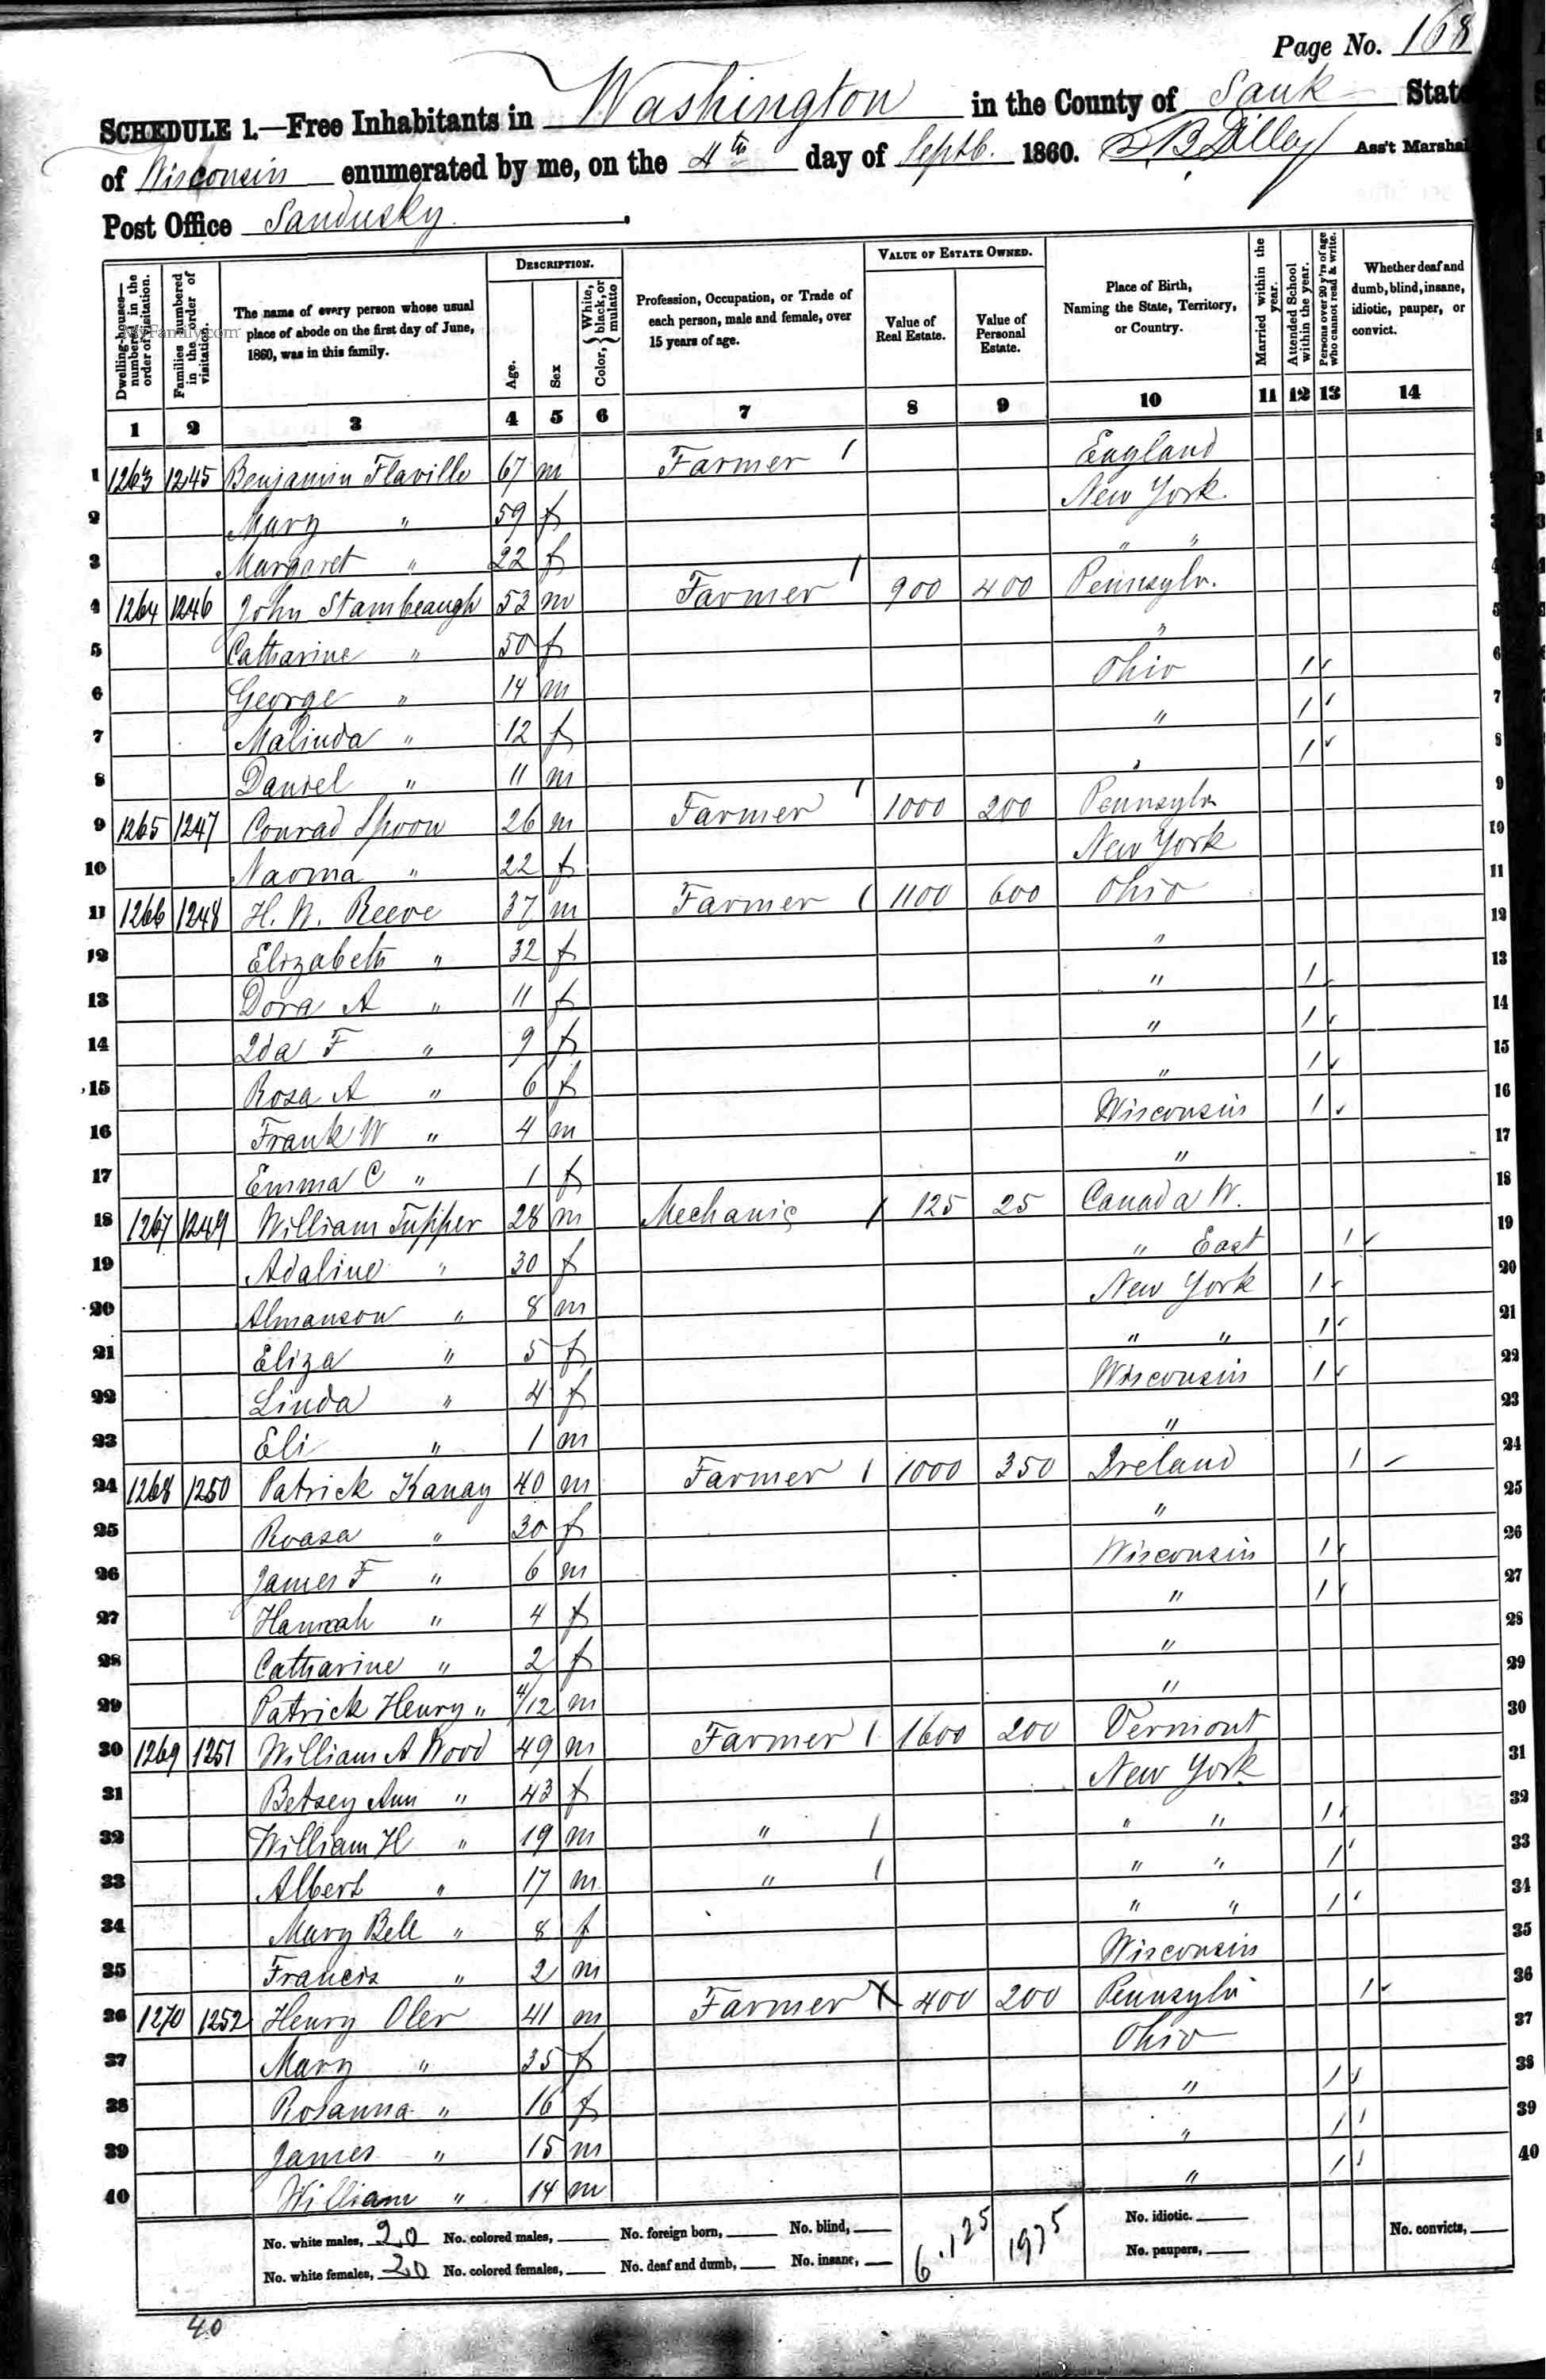 Page No. 168
SCHEDULE 1.—Free Inhabitants in Washington in the County of Sauk State
of Wisconsin enumerated by me, on the 4th day of Septb. 1860. Ass't Marshal
Post Office Sandusky.
MyFamily.com
Dwelling-houses—numbered in the order of visitation.
Families numbered in the order of visitation.
The name of every person whose usual place of abode on the first day of June, 1860, was in this family.
DESCRIPTION.
Age.
Sex
Color, { White, black, or mulatto
Profession, Occupation, or Trade of each person, male and female, over 15 years of age.
VALUE OF ESTATE OWNED.
Value of Real Estate.
Value of Personal Estate.
Place of Birth, Naming the State, Territory, or Country.
Married within the year.
Attended School within the year.
Persons over 20 y'rs of age who cannot read & write.
Whether deaf and dumb, blind, insane, idiotic, pauper, or convict.
1 2 3 4 5 6 7 8 9 10 11 12 13 14
1 1263 1245 Benjamin Flaville 67 m Farmer / England 1
2 Mary " 59 f New York 2
3 Margaret " 22 f " " 3
4 1264 1246 John Stambeaugh 53 m Farmer / 900 400 Pennsylv. 4
5 Catharine " 50 f " 5
6 George " 14 m Ohio / 6
7 Malinda " 12 f " / 7
8 Daniel " 11 m " / 8
9 1265 1247 Conrad Spoon 26 m Farmer / 1000 200 Pennsylv 9
10 Naoma " 22 f New York 10
11 1266 1248 H. W. Reeve 37 m Farmer / 1100 600 Ohio 11
12 Elizabeth " 32 f " 12
13 Dora A " 11 f " / 13
14 Ida F " 9 f " / 14
15 Rosa A " 6 f " / 15
16 Frank W " 4 m Wisconsin / 16
17 Emma C " 1 f " 17
18 1267 1249 William Tupper 28 m Mechanic / 125 25 Canada W. 18
19 Adaline " 30 f " East / 19
20 Almanson " 8 m New York / 20
21 Eliza " 5 f " " / 21
22 Linda " 4 f Wisconsin / 22
23 Eli " 1 m " 23
24 1268 1250 Patrick Kanay 40 m Farmer / 1000 350 Ireland / 24
25 Roasa " 30 f " 25
26 James F " 6 m Wisconsin / 26
27 Hannah " 4 f " / 27
28 Catharine " 2 f " 28
29 Patrick Henry " 4/12 m " 29
30 1269 1251 William A Wood 49 m Farmer / 1600 200 Vermont 30
31 Betsey Ann " 43 f New York 31
32 William H " 19 m " / " " / 32
33 Albert " 17 m " / " " / 33
34 Mary Bell " 8 f " " / 34
35 Francis " 2 m Wisconsin 35
36 1270 1252 Henry Oler 41 m Farmer X 400 200 Pennsylv / 36
37 Mary " 35 f Ohio 37
38 Rosanna " 16 f " / 38
39 James " 15 m " / 39
40 William " 14 m " / 40
No. white males, 20 No. colored males, No. foreign born, No. blind, 6.125 1975 No. idiotic. No. convicts,
No. white females, 20 No. colored females, No. deaf and dumb, No. insane, No. paupers,
40